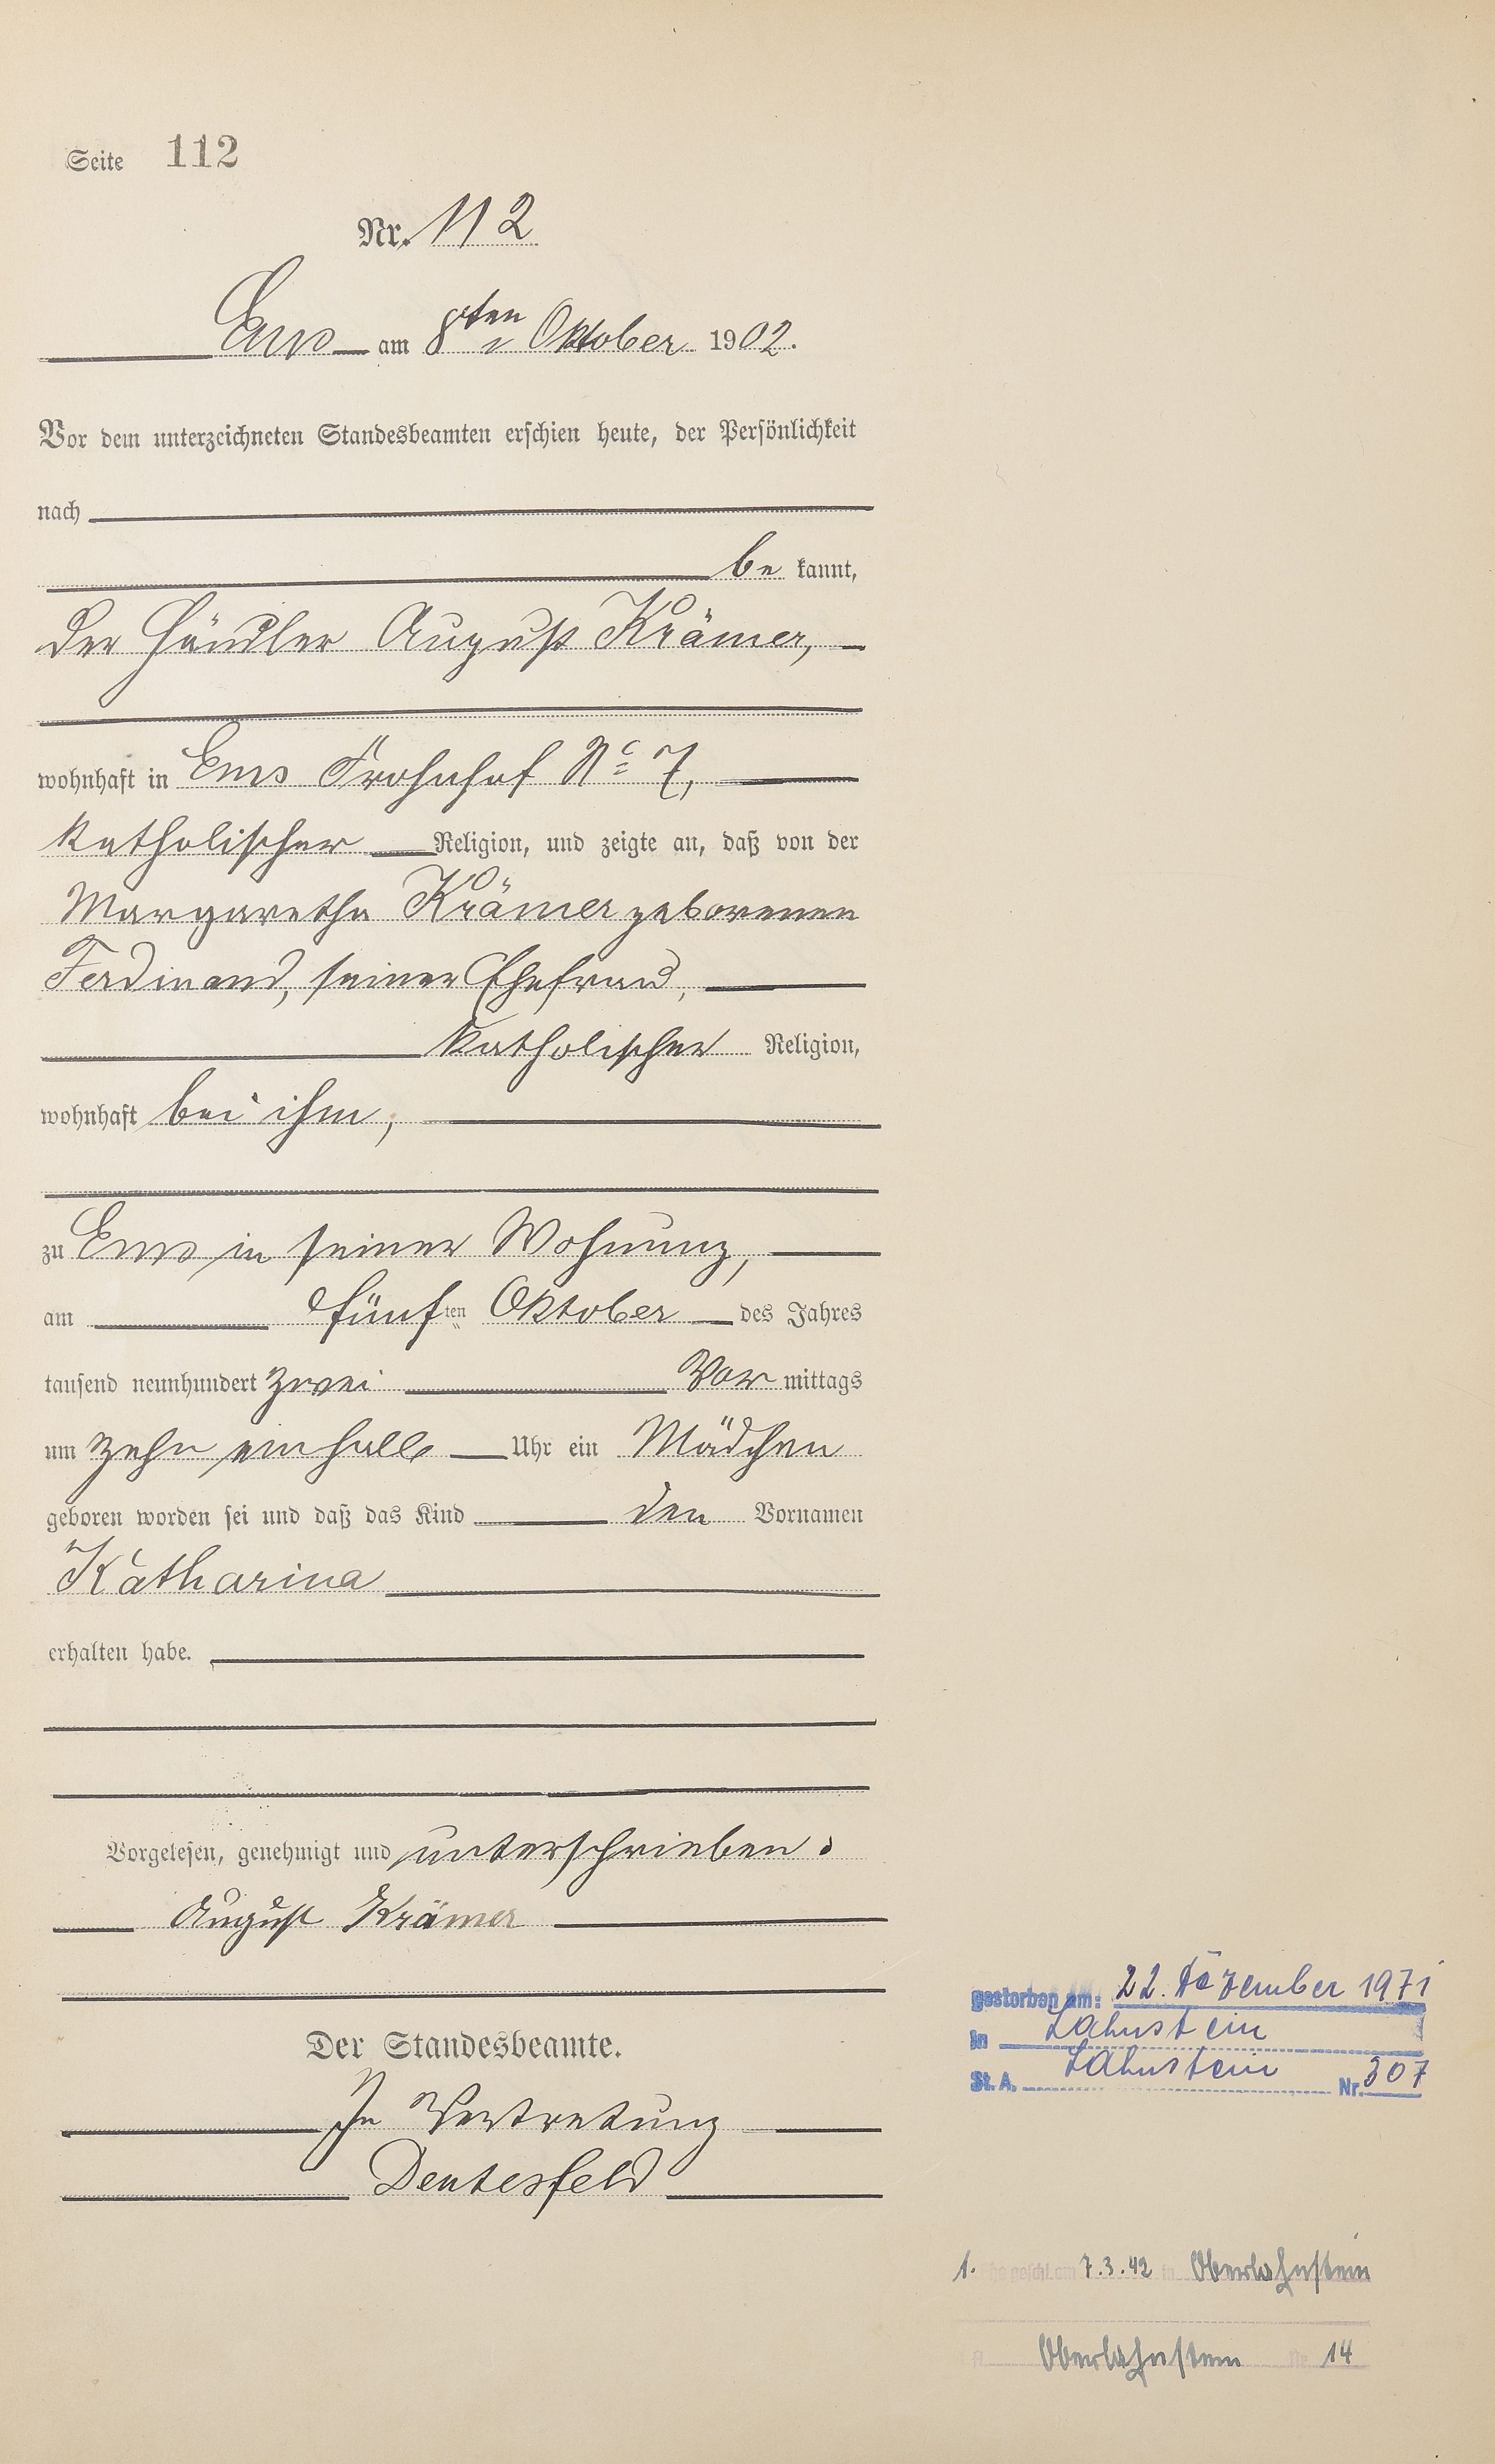 Seite 112
Nr. 112
Ems am 8ten Oktober 1902.
Vor dem unterzeichneten Standesbeamten erschien heute, der Persönlichkeit
nach
be kannt,
der Händler August Krämer,
wohnhaft in Ems Frohnhof No 7,
katholischer Religion, und zeigte an, daß von der
Margaretha Krämer geborenen
Ferdinand, seiner Ehefrau,
katholischer Religion,
wohnhaft bei ihm,
zu Ems in seiner Wohnung,
am fünften Oktober des Jahres
tausend neunhundert zwei Vor mittags
um zehn einhalb Uhr ein Mädchen
geboren worden sei und daß das Kind den Vornamen
Katharina
erhalten habe.
Vorgelesen, genehmigt und unterschrieben.
August Krämer
Der Standesbeamte.
In Vertretung
Dentesfeld
gestorben am: 22. Dezember 1971
in Lahnstein
St. A. Lahnstein Nr. 307
1. Ehe geschl. am 7.3.42 in Oberlahnstein
Oberlahnstein Nr. 14